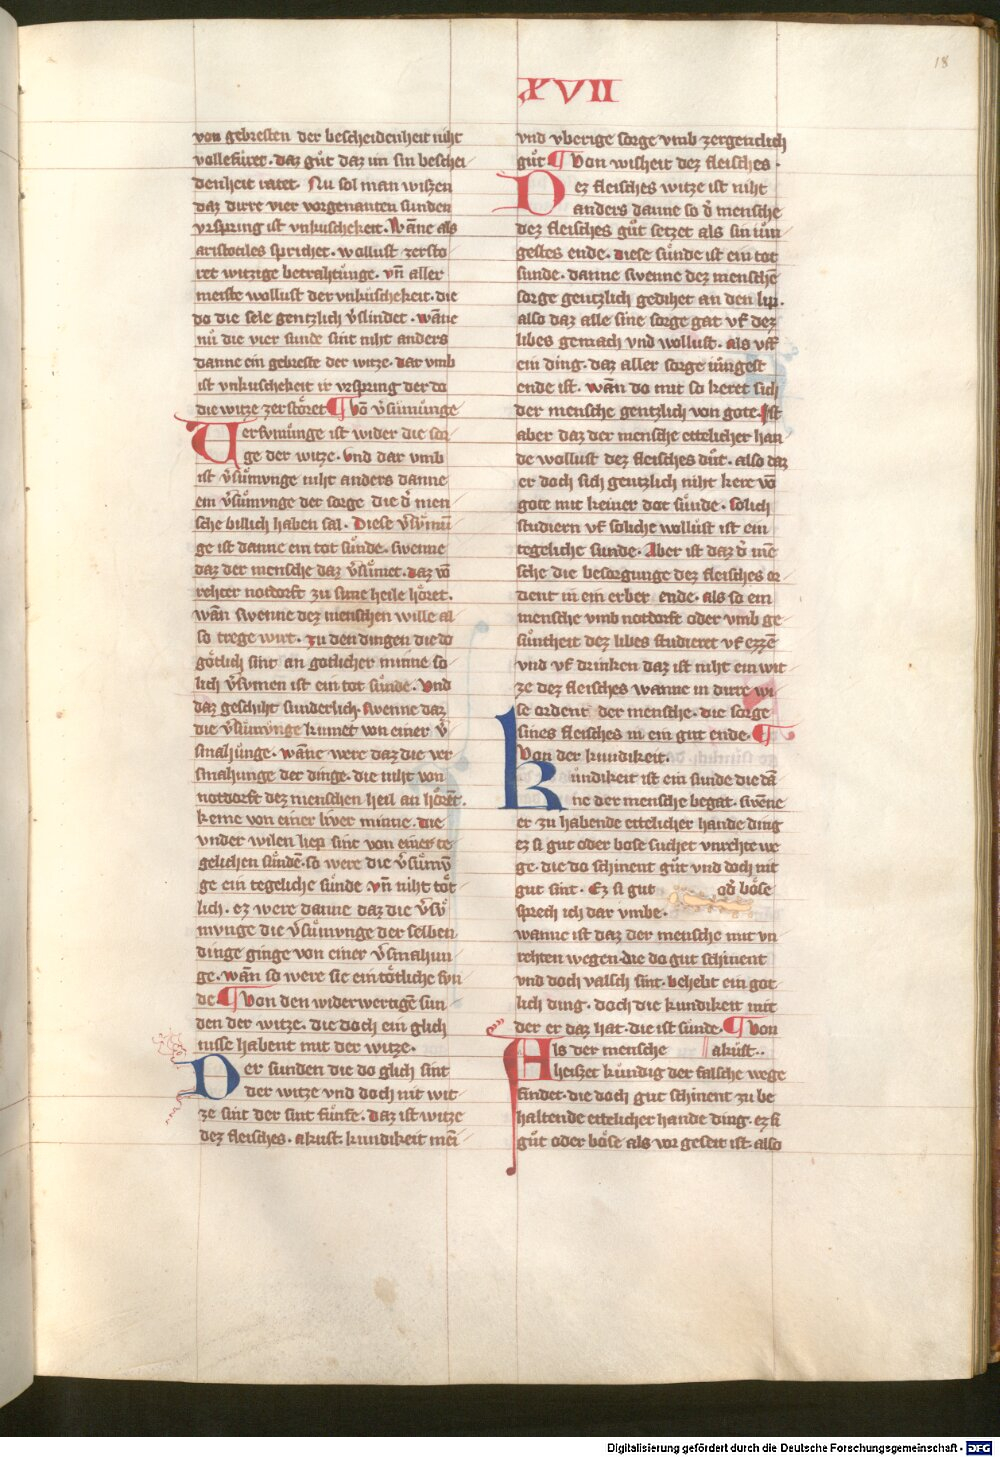 18
XVII
von gebresten der bescheidenheit niht
vollefůret. daz gůt daz im sin beschei
denheit ratet. Nu sol man wiszen
daz dirre vier vorgenanten sunden
vrspring ist vnkuschekeit. Wāne als
aristotiles sprichet. wollust zersto
ret witzige betrahtunge. vn̄ aller
meiste wollust der vnkuschekeit. die
do die sele gentzlich v̓slindet. wāne
nů die vier sunde sint niht anders
danne ein gebreste der witze. dar vmb
ist vnkuschekeit ir vrspring der do
die witze zerstöret ¶ Vō v̓sümünge
Versvmünge ist wider die sor
ge der witze. vnd dar vmb
ist v̓sůmvnge niht anders danne
ein v̓sůmvnge der sorge die d̓ men
sche billich haben sal. Diese v̓sůmū
ge ist danne ein tot sůnde. swenne
daz der mensche daz v̓sůmet. daz vō
rehter notdorft zu sime heile höret.
wān swenne dez menschen wille al
so trege wirt. zu den dingen die do
götlich sint an gotlicher minne so
lich v̓sümen ist ein tot sůnde. vnd
daz geschiht sunderlich. swenne daz
die v̓sümünge kumet von einer v̓
smahünge. wāne were daz die ver
smahunge der dinge. die niht von
notdorft dez menschen heil an hörēt.
keme von einer liver minne. die
vnder wilen liep sint von einer te
gelichen sůndē. so were die v̓sůmv̄
ge ein tegeliche sůnde vn̄ niht töt
lich. ez were danne daz die v̓sv̊
mvnge die v̓sümvnge der selben
dinge ginge von einer v̓smahun
ge. wān so were sie ein tötliche svn
de ¶ Von den widerwertigē sun
den der witze. die doch ein glich
nisse habent mit der witze.
Der sunden die do glich sint
der witze vnd doch nit wit
ze sint der sint fünfe. daz ist witze
dez fleisches. akust. kundikeit mēi
vnd vberige sorge vmb zergenclich
gůt ¶ Von wisheit dez fleisches.
Dez fleisches witze ist niht
anders danne so d̓ mensche
dez fleisches gůt setzet als sin iün
gestes ende. diese sůnde ist ein tot
sunde. danne swenne dez mensche
sorge gentzlich gedihet an den lip.
also daz alle sine sorge gat vf dez
libes gemach vnd wollust. als vff
ein ding. daz aller sorge iüngest
ende ist. wān do mit so keret sich
der mensche gentzlich von gote. Ist
aber daz der mensche ettelicher han
de wollust dez fleisches důt. also daz
er doch sich gentzlich niht kere vō
gote mit keiner dot sůnde. solich
studiern vf soliche wollust ist ein
tegeliche sunde. Aber ist daz d̓ mē
sche die besorgunge dez fleisches or
dent in ein erber ende. als so ein
mensche vmb notdorft oder vmb ge
sůntheit dez libes studieret vf ezzē
vnd vf drinken daz ist niht ein wit
ze dez fleisches wanne in dirre wi
se ordent der mensche. die sorge
sines fleisches in ein gut ende. ¶
Von der kundikeit.
Kündikeit ist ein sunde die dā
ne der mensche begat. swēne
er zu habende ettelicher hande ding
ez si gut oder bose suchet vnrehte we
ge. die do schinent gůt vnd doch nit
gut sint. Ez si gut od̓ böse
sprech ich dar vmbe.
wanne ist daz der mensche mit vn
rehten wegen die do gut schinent
vnd doch valsch sint. behebt ein got
lich ding. doch die kundikeit mit
der er daz hat. die ist sünde. ¶ Von
Als der mensche akust..
heiszet kündig der falsche wege
findet. die doch gut schinent zu be
haltende ettelicher hande ding. ez si
gůt oder böse als vor geseit ist. also
Digitalisierung gefördert durch die Deutsche Forschungsgemeinschaft - DFG